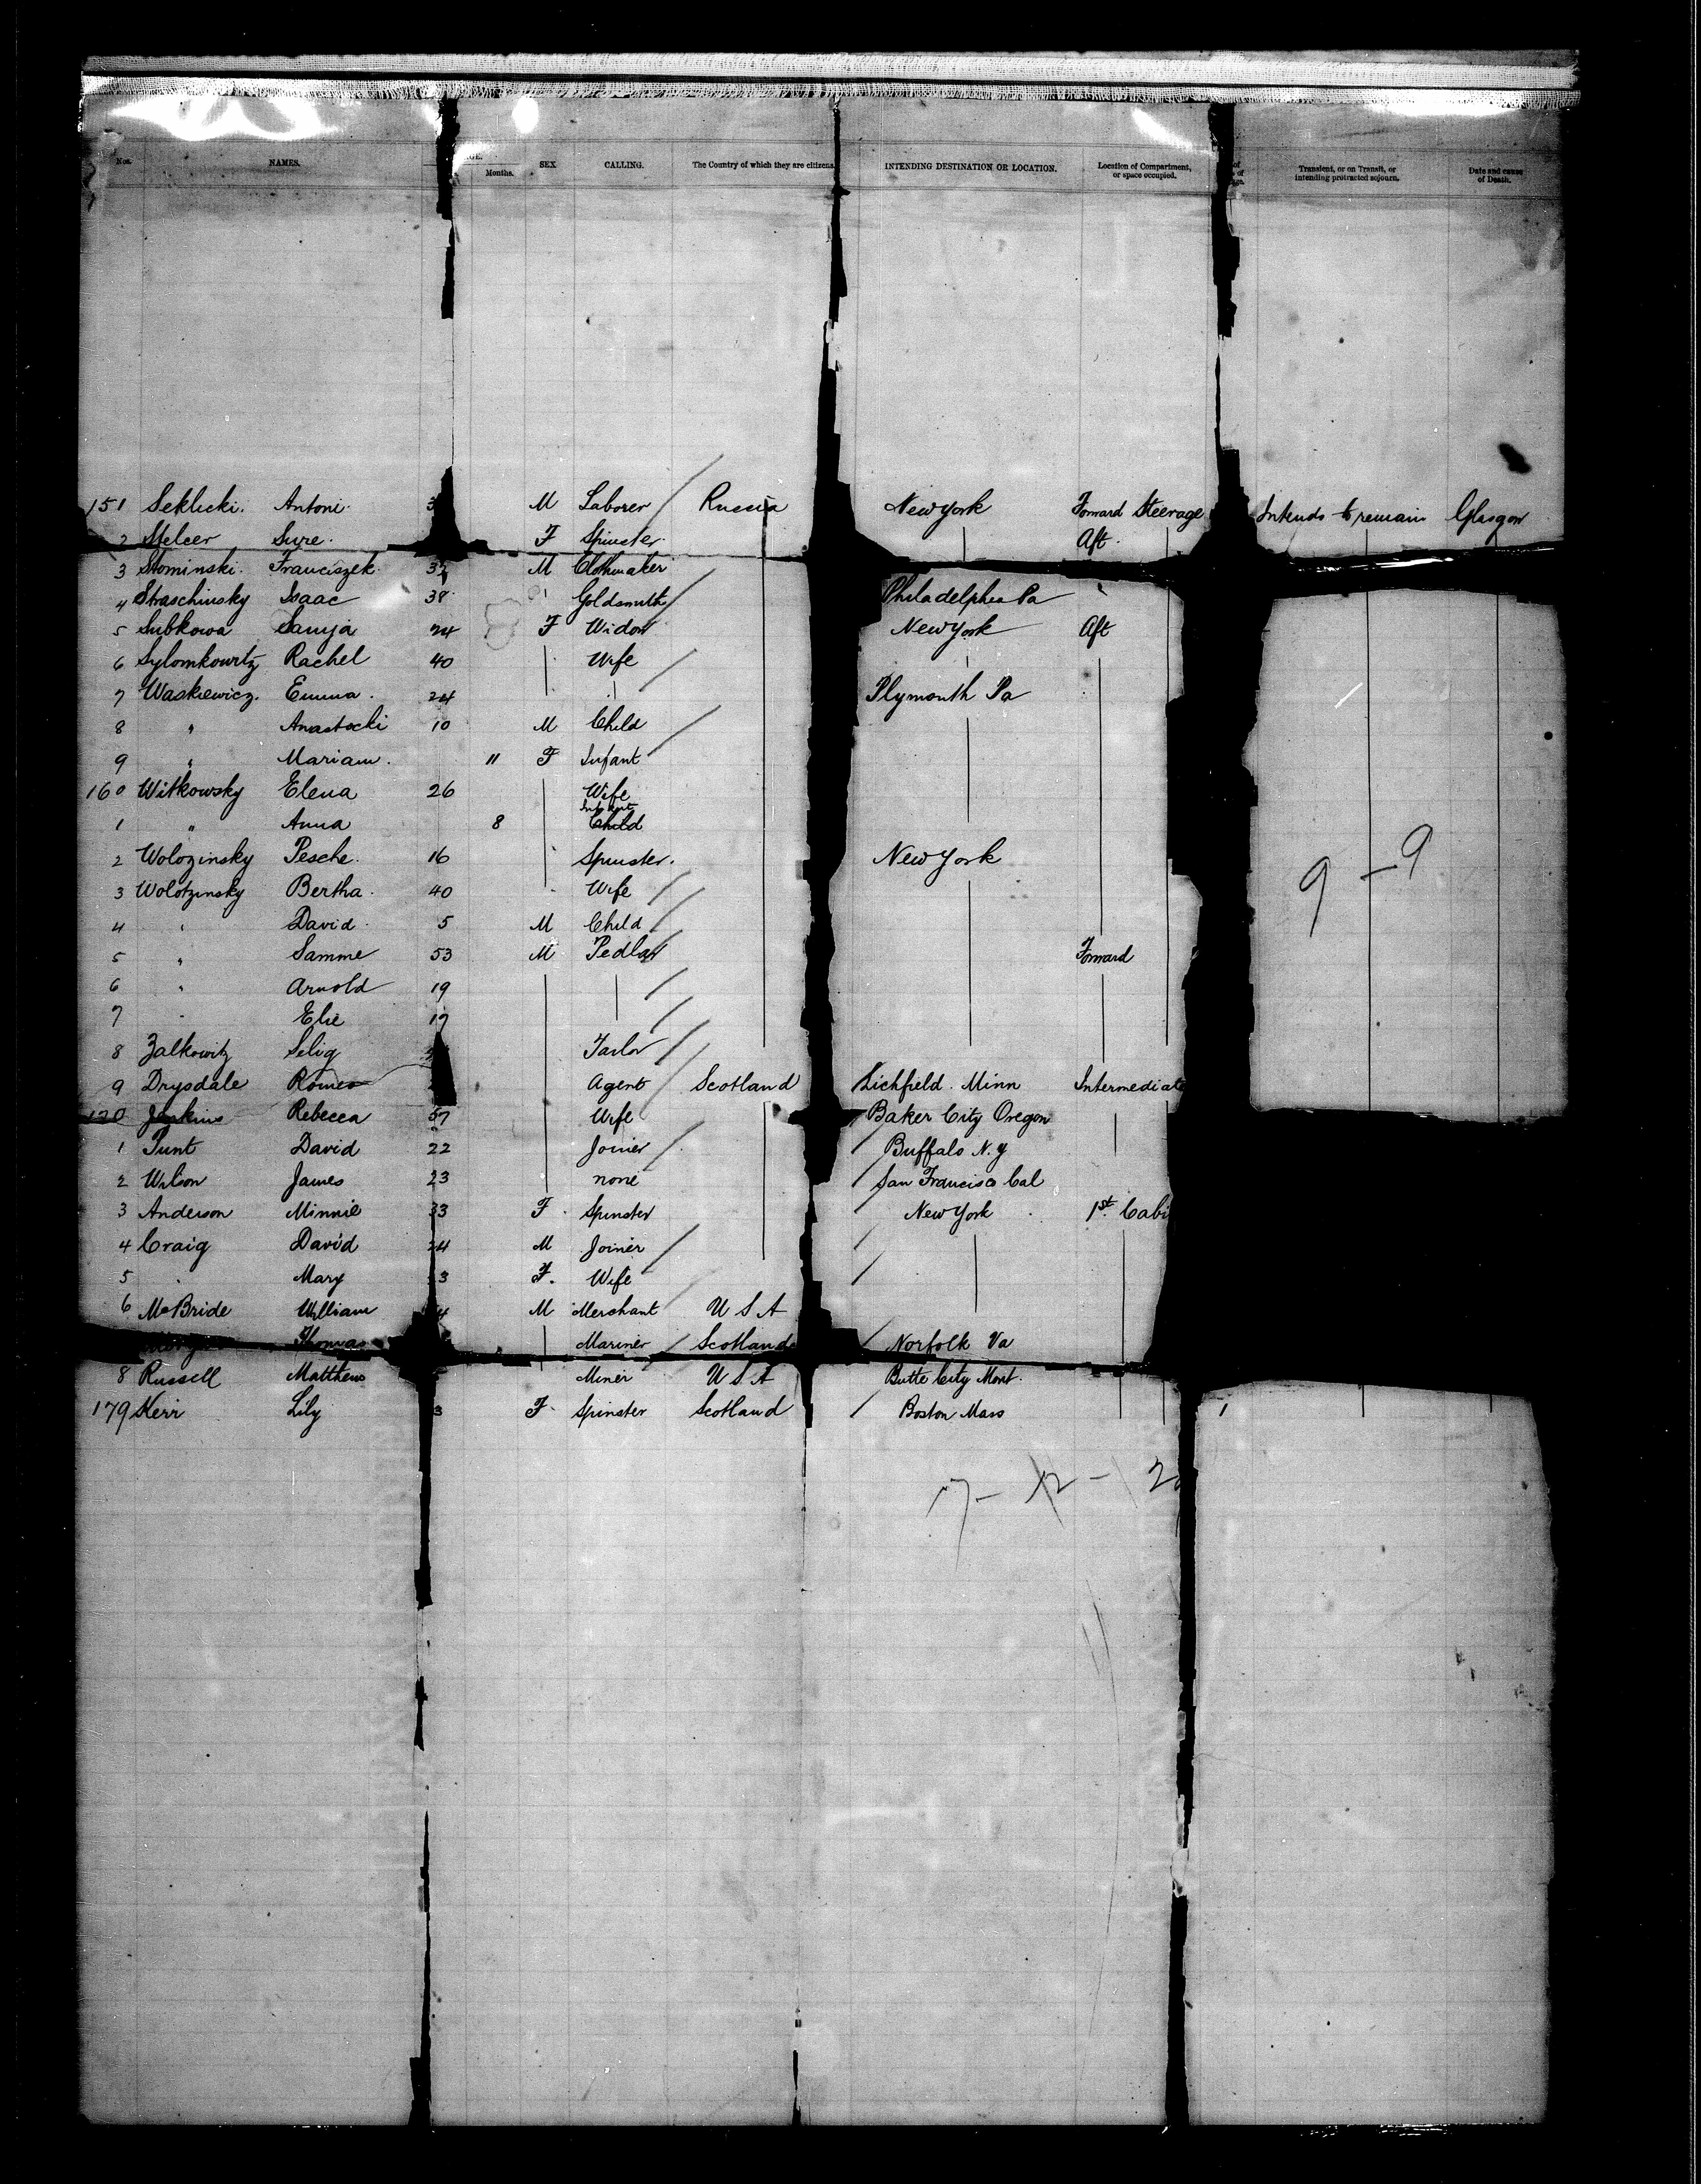 Nos. NAMES. Months. SEX CALLING. The Country of which they are citizens. INTENDING DESTINATION OR LOCATION. Location of Compartment, or space occupied. Transient, or on Transit, or intending protracted sojourn. Date and cause of Death.
151 Seklicki. Antoni. M Laborer Russia New York Forward Steerage Intends to remain Glasgow
2 Stelcer Sure. F Spinster. Aft.
3 Slominski. Franciszek. M Clothmaker
4 Straschinsky Isaac 38 " Goldsmith Philadelphia Pa "
5 Subkowa Sanja 24 F Widow New York Aft
6 Sylomkowitz Rachel 40 Wife
7 Waskiewicz. Emma. 24 Plymouth Pa
8 " Anastocki 10 M Child
9 " Mariam. 11 F Infant
160 Witkowsky Elena 26 Wife
1 " Anna 8 Infant Child
2 Wolozinsky Pesche. 16 Spinster. New York
3 Wolotzinsky Bertha. 40 Wife
4 " David. 5 M Child
5 " Samme 53 M Pedlar Forward
6 " Arnold 19
7 " Elie 17
8 Zalkowitz Selig Tailor
9 Drysdale Romeo Agent Scotland Lichfield. Minn Intermediate
170 Jenkins Rebecca 57 Wife Baker City Oregon
1 Punt David 22 Joiner Buffalo N.Y
2 Wilson James 23 none San Francisco Cal
3 Anderson Minnie 33 F. Spinster New York 1st Cabi
4 Craig David 24 M Joiner
5 " Mary 3 F. Wife
6 McBride William 4 M Merchant U S A
Thomas Mariner Scotland Norfolk Va
8 Russell Matthew Miner U S A Butte City Mont.
179 Kerr Lily 3 F. Spinster Scotland Boston Mass
9 - 9
7 - 12 - 2